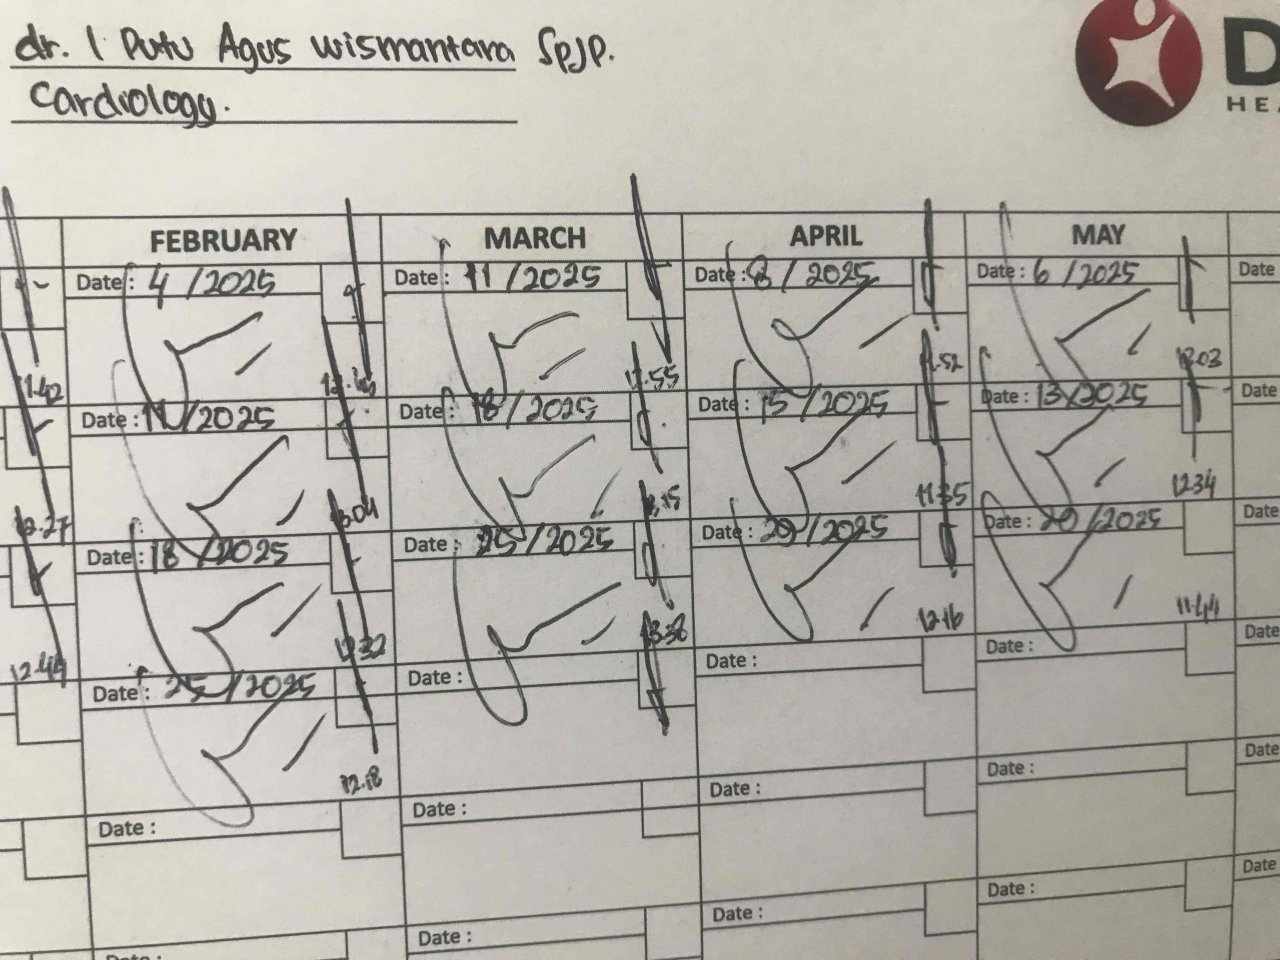 dr. I Putu Agus Wismantara SpJP.
Cardiology.
D
HEA
FEBRUARY MARCH APRIL MAY
Date : 4 /2025 Date : 11 /2025 Date : 8 / 2025 Date : 6 /2025 Date
11.42 11.52 12.03
Date : 11 /2025 Date : 18 /2025 Date : 15 /2025 Date : 13/2025 Date
12.27 13.04 11.35 12.34
Date : 18 /2025 Date : 25 /2025 Date : 29 /2025 Date : 20 /2025 Date
12.44 12.32 13.38 12.16 11.44
Date : 25 /2025 Date : Date : Date : Date
12.18
Date : Date : Date : Date : Date
Date : Date : Date : Date : Date